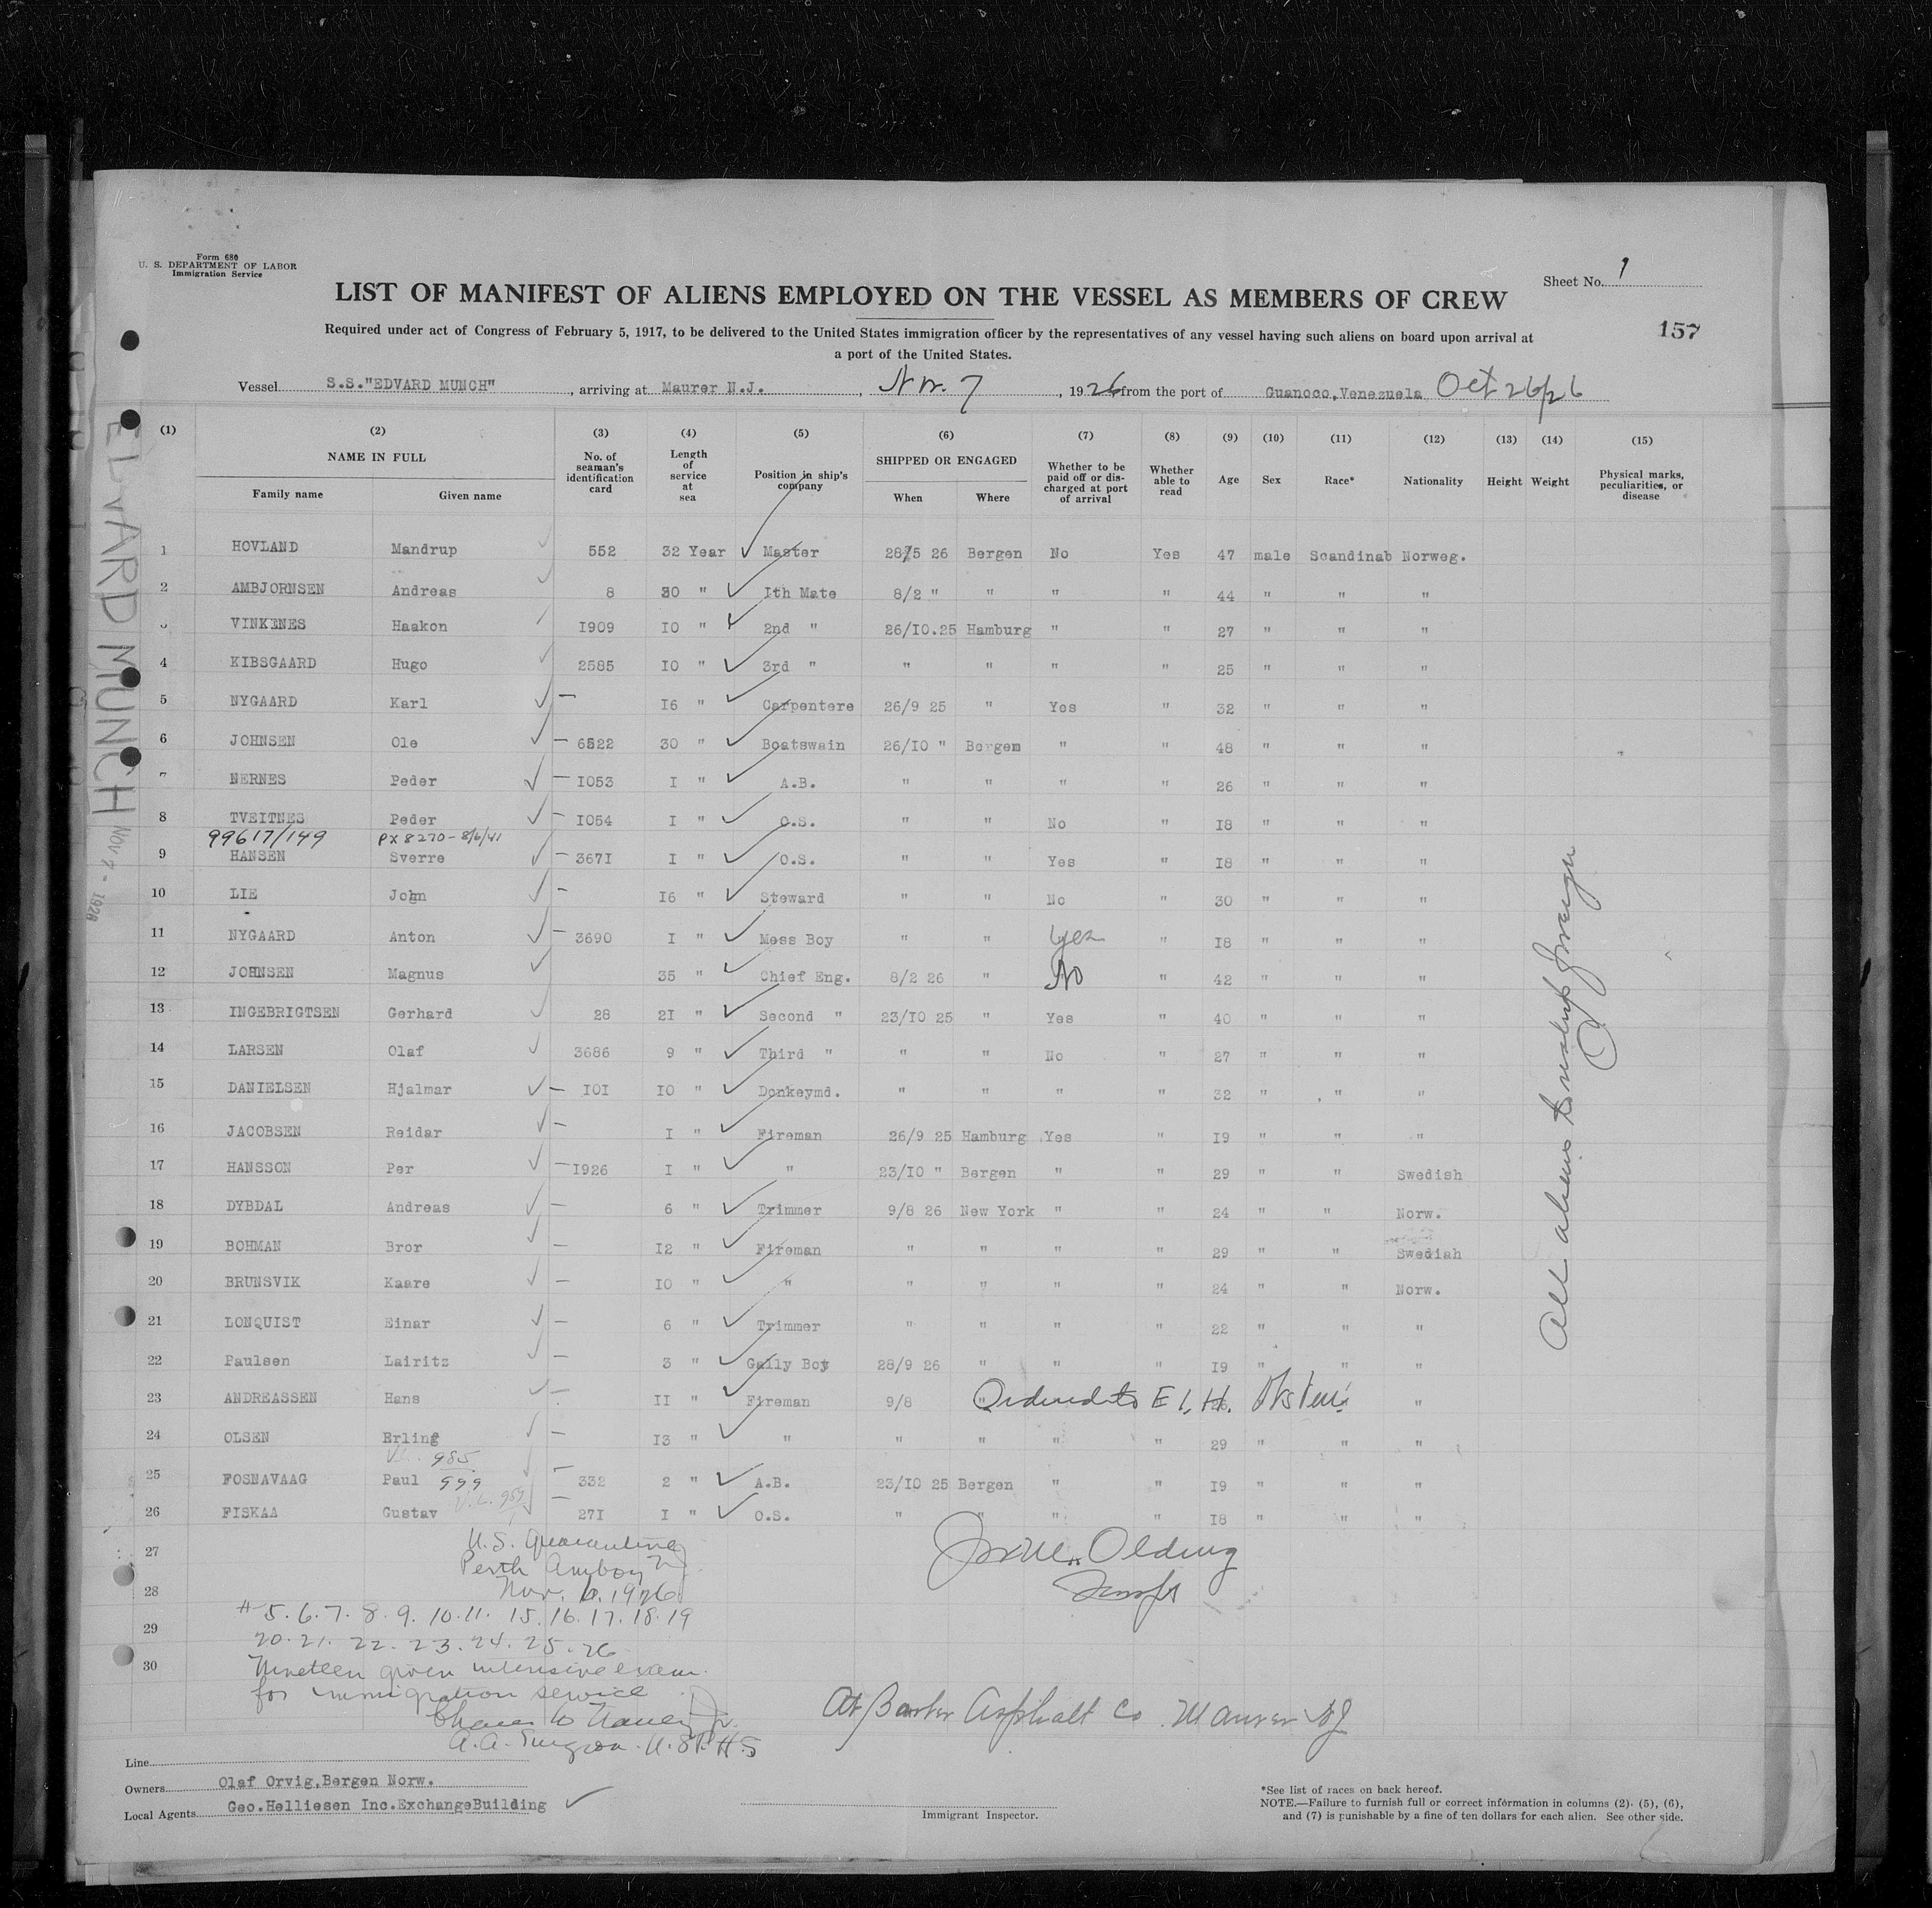 Form 680
U. S. DEPARTMENT OF LABOR
Immigration Service
Sheet No. 1
LIST OF MANIFEST OF ALIENS EMPLOYED ON THE VESSEL AS MEMBERS OF CREW
157
Required under act of Congress of February 5, 1917, to be delivered to the United States immigration officer by the representatives of any vessel having such aliens on board upon arrival at
a port of the United States.
Vessel S.S."EDVARD MUNCH", arriving at Maurer N.J., Nov. 7, 1926 from the port of Guanoco,Venezuela Oct 26/26
(1) (2) (3) (4) (5) (6) (7) (8) (9) (10) (11) (12) (13) (14) (15)
NAME IN FULL Family name Given name No. of seaman's identification card Length of service at sea Position in ship's company SHIPPED OR ENGAGED When Where Whether to be paid off or discharged at port of arrival Whether able to read Age Sex Race* Nationality Height Weight Physical marks, peculiarities, or disease
1 HOVLAND Mandrup 552 32 Year Master 28/5 26 Bergen No Yes 47 male Scandinab Norweg.
2 AMBJORNSEN Andreas 8 30 " Ith Mate 8/2 " " " " 44 " " "
VINKENES Haakon I909 IO " 2nd " 26/IO.25 Hamburg " " 27 " " "
4 KIBSGAARD Hugo 2585 IO " 3rd " " " " " 25 " " "
5 NYGAARD Karl — I6 " Carpentere 26/9 25 " Yes " 32 " " "
6 JOHNSEN Ole — 6522 30 " Boatswain 26/IO " Bergen " " 48 " " "
7 NERNES Peder — I053 I " A.B. " " " " 26 " " "
8 TVEITNES Peder — I054 I " O.S. " " No " I8 " " "
99617/149 PX8270-8/6/41
9 HANSEN Sverre — 367I I " O.S. " " Yes " I8 " " "
10 LIE John — I6 " Steward " " No " 30 " " "
11 NYGAARD Anton — 3690 I " Mess Boy " " Yes " I8 " " "
12 JOHNSEN Magnus 35 " Chief Eng. 8/2 26 " No " 42 " " "
13 INGEBRIGTSEN Gerhard 28 2I " Second " 23/IO 25 " Yes " 40 " " "
14 LARSEN Olaf 3686 9 " Third " " " No " 27 " " "
15 DANIELSEN Hjalmar — IOI IO " Donkeymd. " " " " 32 " " "
16 JACOBSEN Reidar — I " Fireman 26/9 25 Hamburg Yes " I9 " " "
17 HANSSON Per — I926 I " " 23/IO " Bergen " " 29 " " Swedish
18 DYBDAL Andreas — 6 " Trimmer 9/8 26 New York " " 24 " " Norw.
19 BOHMAN Bror — I2 " Fireman " " " " 29 " " Swedish
20 BRUNSVIK Kaare — IO " " " " " " 24 " " Norw.
21 LONQUIST Einar — 6 " Trimmer " " " " 22 " " "
22 Paulsen Lairitz — 3 " Gally Boy 28/9 26 " " " I9 " " "
23 ANDREASSEN Hans — II " Fireman 9/8 " Ordered to E I. H. "
24 OLSEN Erling — I3 " " " " " " 29 " " "
985
25 FOSNAVAAG Paul 999 — 332 2 " A.B. 23/IO 25 Bergen " " I9 " " "
V.L. 989
26 FISKAA Gustav — 27I I " O.S. " " " " I8 " " "
27
28
29
30
U.S. Quarantine
Perth Amboy NJ
Nov. 6. 1926
# 5. 6. 7. 8. 9. 10. 11. 15. 16. 17. 18. 19
20. 21. 22. 23. 24. 25. 26
Nineteen given intensive exam.
for immigration service
A. A. Surgeon. U.S.P.H.S
Olding
Insp
At Barber Asphalt Co. Maurer NJ
All aliens
EDVARD MUNCH
NOV 7 -
Line
Owners Olaf Orvig,Bergen Norw.
Local Agents Geo.Helliesen Inc.ExchangeBuilding
Immigrant Inspector.
*See list of races on back hereof.
NOTE.—Failure to furnish full or correct information in columns (2), (5), (6),
and (7) is punishable by a fine of ten dollars for each alien. See other side.